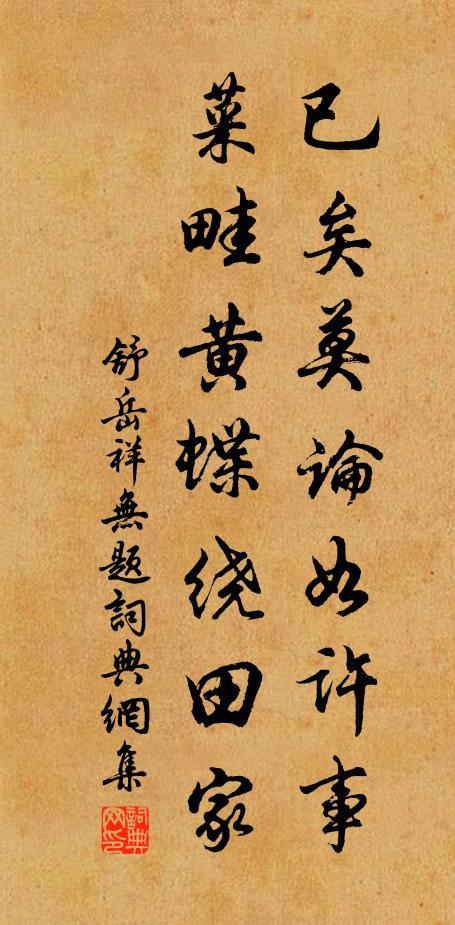 已矣莫論如許事
菜畦黄蝶绕田家
舒岳祥無题詞典網集
詞典网印